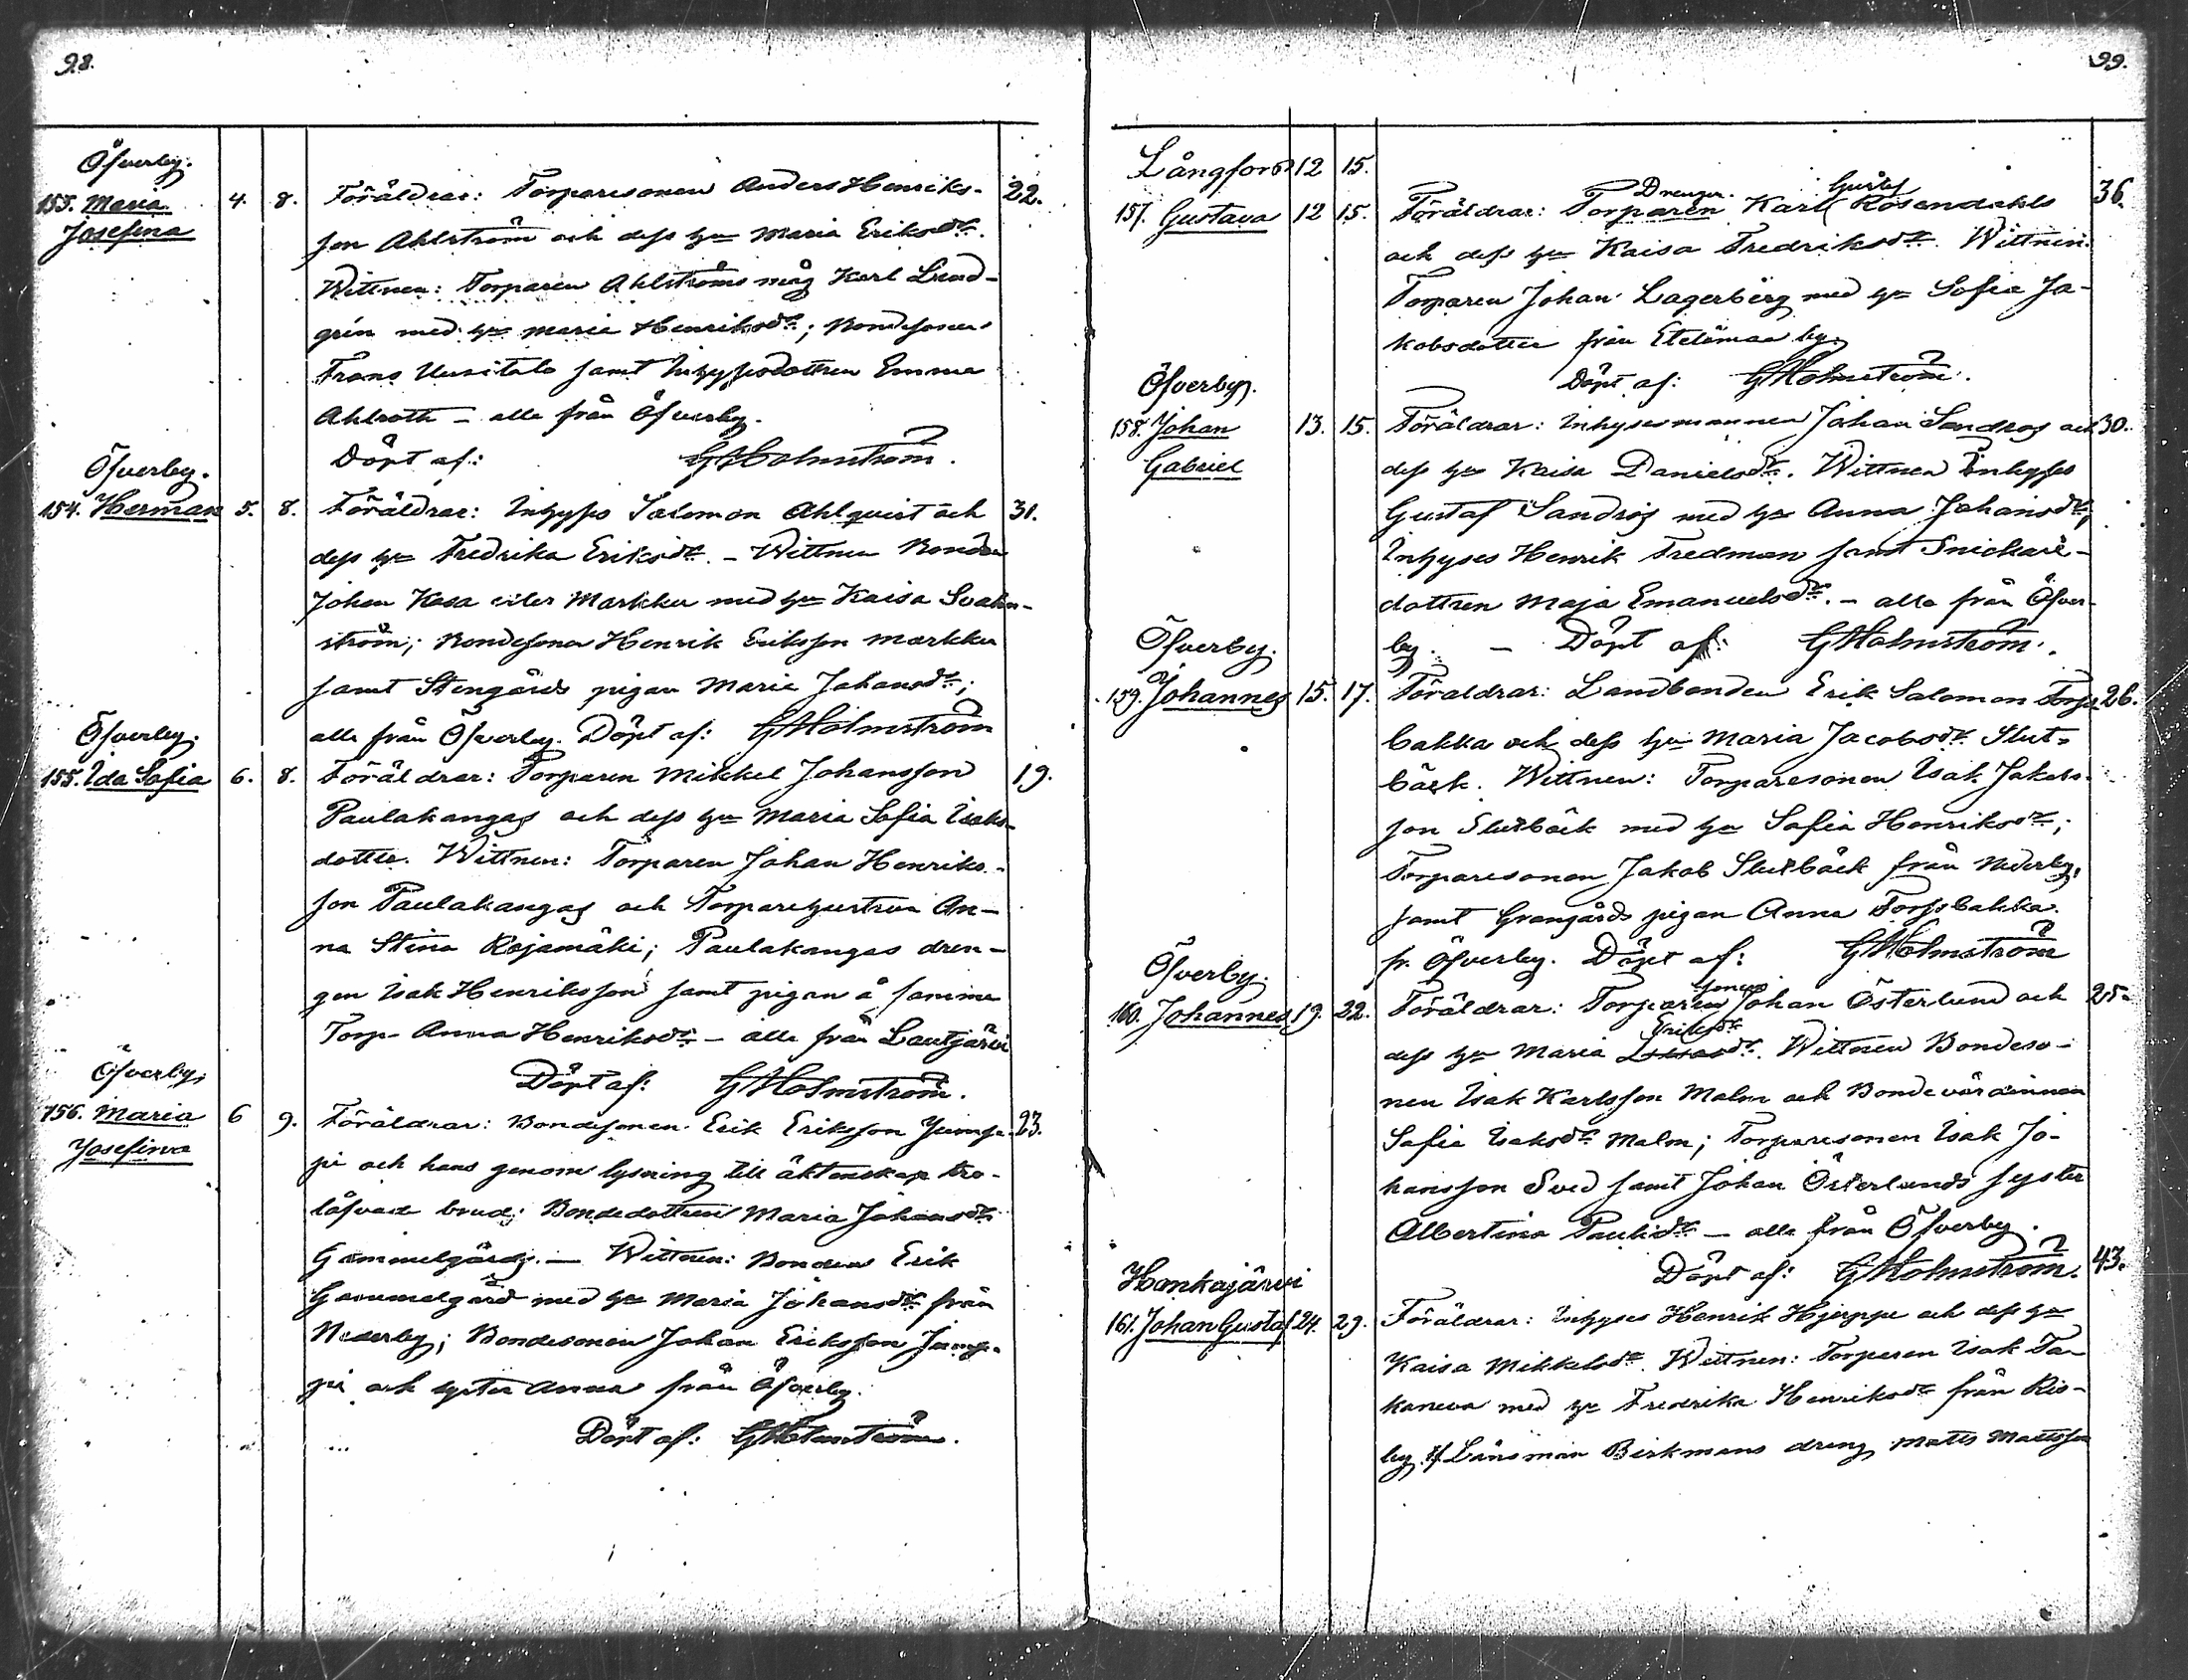 98.
Öfverby.
153. Maria 4. 8. Föräldrar: Torparesonen Anders Henriks- 22.
Josefina
son Ahlström och dess hu Maria Eriksdr.
Wittnen: Torparen Ahlströms måg Karl Lind-
grén med hu Maria Henriksdr; Bondesonen
Frans Uusitalo samt Inhysesdottren Emma
Ahlroth – alle från Öfverby.
Döpt af: GHolmström.
Öfverby.
154. Herman 5. 8. Föräldrar: Inhyses Salomon Ahlqvist och 31.
dess hu Fredrika Eriksdr. – Wittnen Bonden
Johan Kasa eller Markku med hu Kaisa Svahn-
ström; Bondesonen Henrik Eriksson Markku
samt Stengårds pigan Maria Johansdr;
alle från Öfverby. Döpt af: GHolmström
Öfverby.
155. Ida Sofia 6. 8. Föräldrar: Torparen Mikkel Johansson 19.
Paulakangas och dess hu Maria Sofia Isaks-
dotter. Wittnen: Torparen Johan Henriks-
son Paulakangas och Torparehustrun An-
na Stina Rajamäki; Paulakangas dren-
gen Isak Henriksson samt pigan å samma
Torp Anna Henriksdr – alle från Lautjärvi
Döpt af: GHolmström.
Öfverby.
156. Maria 6 9. Föräldrar: Bondesonen Erik Eriksson Jump- 23.
Josefina
pi och hans genom lysning till äktenskap tro-
låfvade brud: Bondedottren Maria Johansdr
Gammelgård. – Wittnen: Bonden Erik
Gammelgård med hu Maria Johansdr från
Nederby; Bondesonen Johan Eriksson Jump-
pi och syster Anna från Öfverby.
Döpt af: GHolmström.
99.
Långfors 12 15.
Drengen. Gustaf
157. Gustava 12 15. Föräldrar: Torparen Karl Rosendahls 36.
och dess hu Kaisa Fredriksdr. Wittnen:
Torparen Johan Lagerberg med hu Sofia Ja-
kobsdotter från Etelämaa by.
Döpt af: GHolmström.
Öfverby.
158. Johan 13. 15. Föräldrar: Inhysesmannen Johan Sandrog och 30.
Gabriel dess hu Kaisa Danielsdr. Wittnen Inhyses
Gustaf Sandrog med hu Anna Johansdr;
Inhyses Henrik Fredman samt Snickare-
dottren Maja Emanuelsdr. – alla från Öfver-
by. – Döpt af: GHolmström.
Öfverby.
159. Johannes 15. 17. Föräldrar: Landbonden Erik Salomon Torps- 26.
bakka och dess hu Maria Jacobsdr Slut-
bäck. Wittnen: Torparesonen Isak Jakobs-
son Slutbäck med hu Sofia Henriksdr;
Torparesonen Jakob Slutbäck från Nederby,
samt Grangårds pigan Anna Torpsbakka
fr. Öfverby. Döpt af: GHolmström
Öfverby.
sonen
160. Johannes 19. 22. Föräldrar: Torparen Johan Österlund och 25.
Eriksdr
dess hu Maria Wittnen Bondeso-
nen Isak Karlsson Malm och Bondevärdinnan
Sofia Isaksdr Malm; Torparesonen Isak Jo-
hansson Sved samt Johan Österlunds syster
Albertina Paulidr – alle från Öfverby.
Döpt af: GHolmström.
Honkajärvi 43.
161. Johan Gustaf 24. 29. Föräldrar: Inhyses Henrik Hjerppe och dess hu
Kaisa Mikkelsdr. Wittnen: Torparen Isak Ta-
kaneva med hu Fredrika Henriksdr från Ris-
by, Länsman Birkmans dreng Matts Mattsson